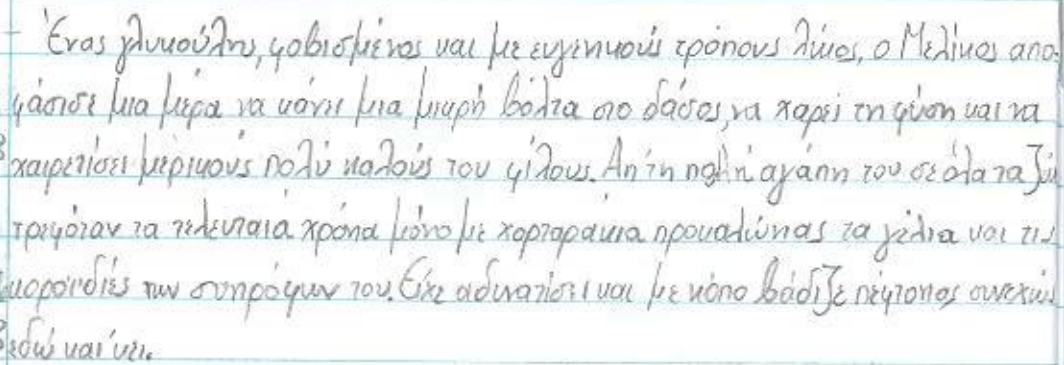 - Ένας γλυκούλης, φοβισμένος και με ευγενικούς τρόπους λύκος, ο Μελίκος απο
φάσισε μια μέρα να κάνει μια μικρή βόλτα στο δάσος, να χαρεί τη φύση και να
χαιρετίσει μερικούς πολύ καλούς του φίλους. Απ' τη πολλή αγάπη του σε όλα τα ζώα
τρεφόταν τα τελευταία χρόνια μόνο με χορταράκια προκαλώντας τα γέλια και τις
κοροϊδίες των συντρόφων του. Είχε αδυνατίσει και με κόπο βάδιζε πέφτοντας συνεχώς
εδώ και κει.